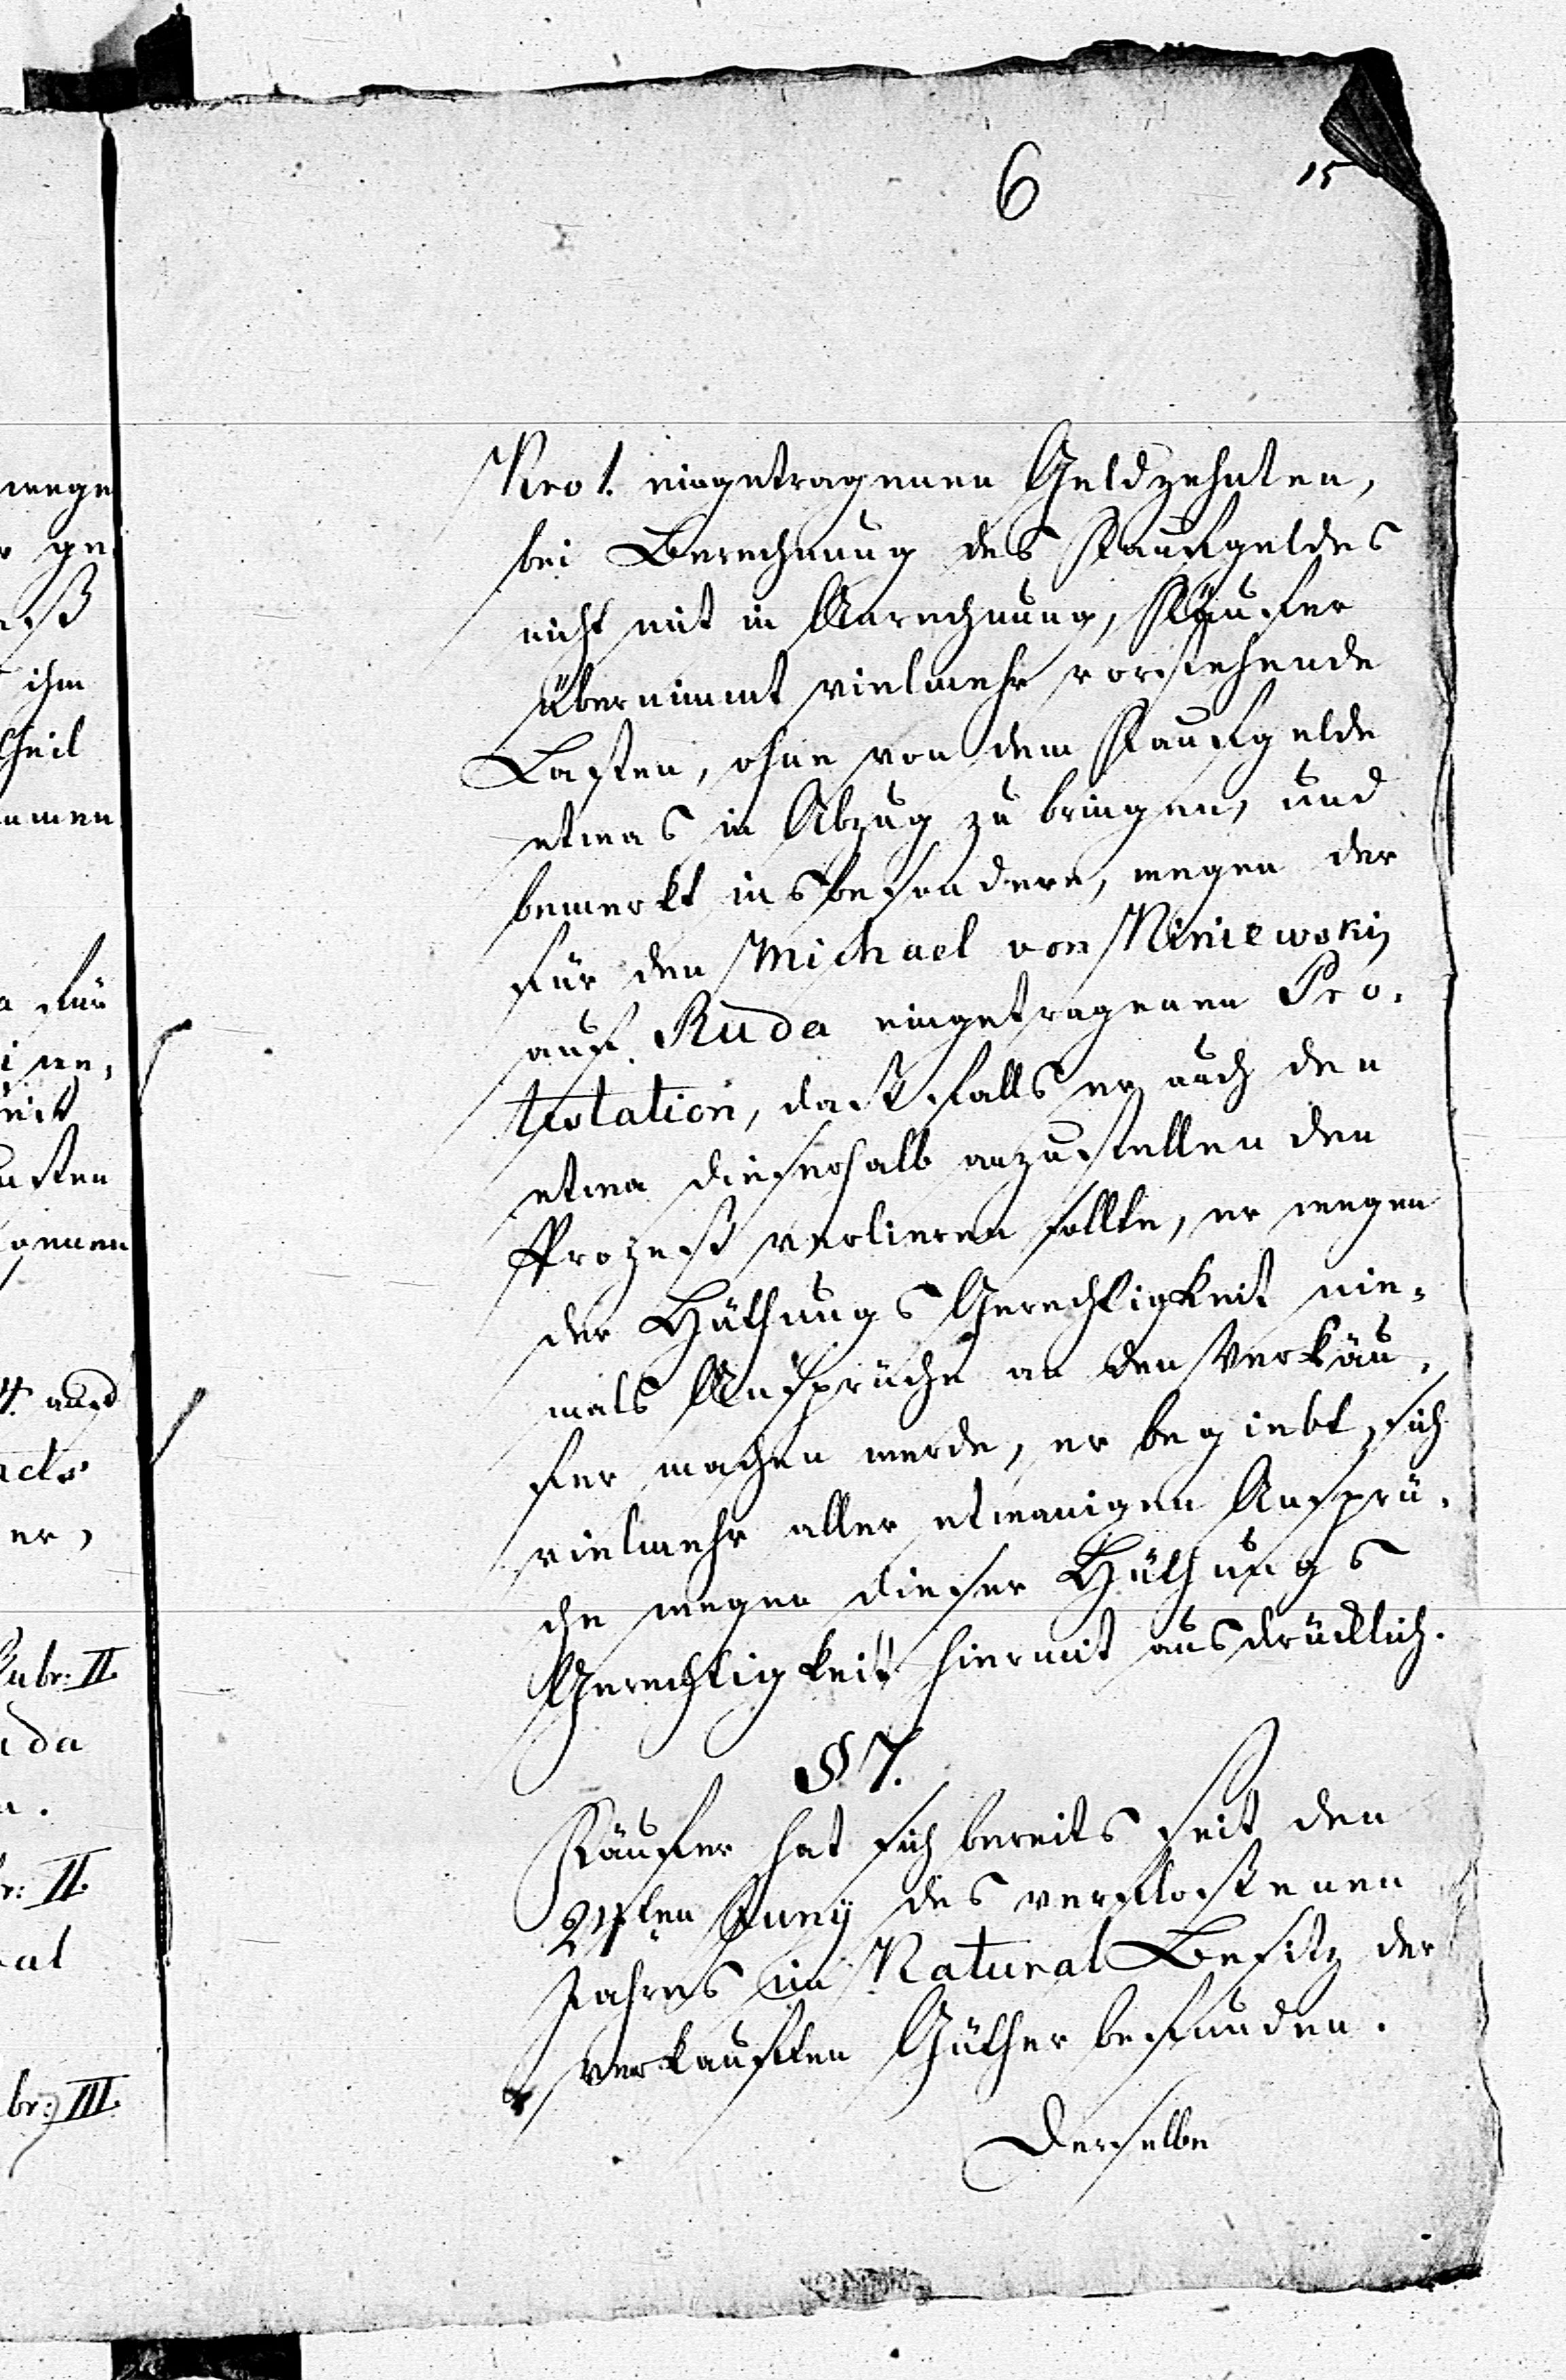 6
15
Nro 1. eingetragenen Geldzehnten,
bei Berechnung des Kaufgeldes
nicht mit in Anrechnung, Käufer
übernimmt vielmehr vorstehende
Lasten, ohne von dem Kaufgelde
etwas in Abzug zu bringen, und
bemerkt insbesondere, wegen der
für den Michael von Miniewskij
auf Ruda eingetragenen Pro-
testation, daß falls er auch den
etwa dieserhalb anzustellenden
Prozeß verlieren sollte, er wegen
der Hüthungs Gerechtigkeit nie-
mals Ansprüche an den Verkäu-
fer machen werde, er begiebt sich
vielmehr aller etwanigen Ansprü-
che wegen dieser Hüthungs
Gerechtigkeit hiermit ausdrücklich.
§ 7.
Käufer hat sich bereits seit den
24sten Juny des verfloßenen
Jahres im Natural Besitz der
verkauften Güther befunden.
Derselbe
wege
ge
ihm
theil
men
für
4. auf
er,
Rubr: II.
da
r: II.
al
br: III.